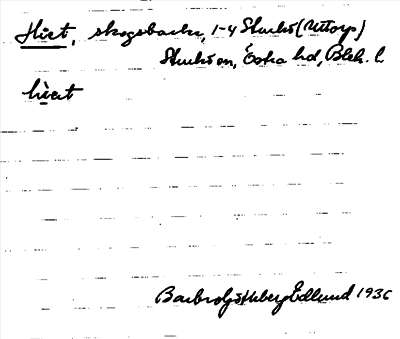 Hiet, skogsbacke, 1-4 Sturkö (Uttorp)
Sturkö sn, Östra hd, Blek. l.
hiet
Barbro Götherberg Edlund 1936